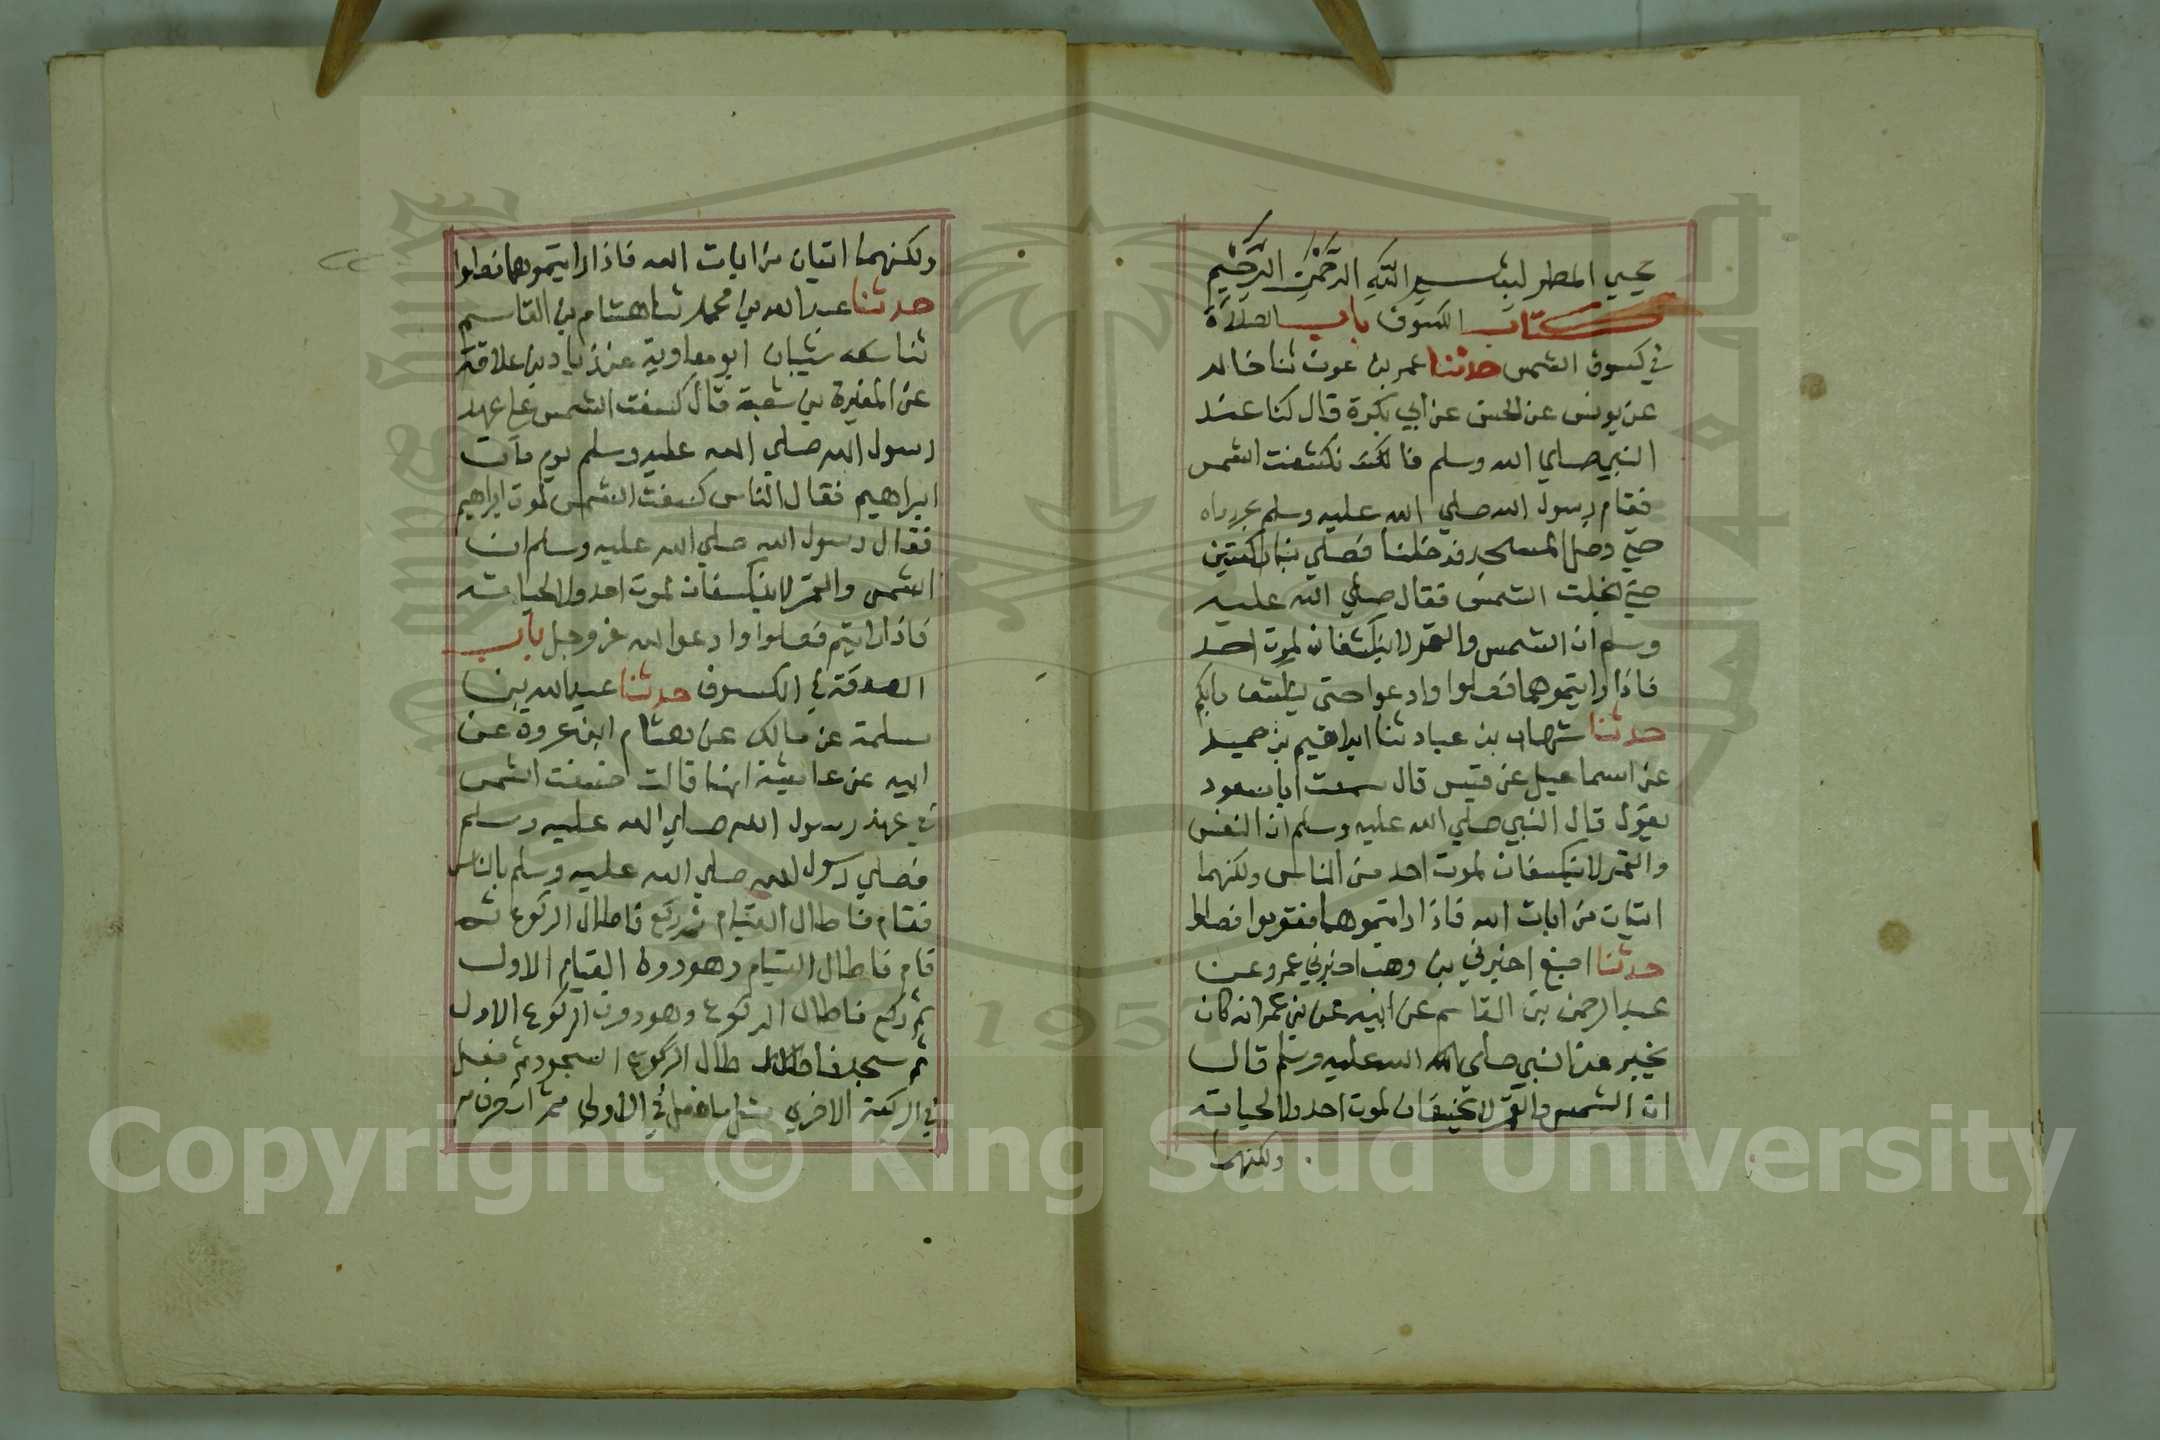 يجيى المطر بسم الله الرحمن الرحيم
كتاب الكسوف باب الصلاة
في كسوف الشمس حدثنا عمر بن عون ثنا خالد
عن يونس عن الحسن عن ابي بكرة قال كنا عند
النبي صلي الله وسلم فانكسفت الشمس
فقام رسول الله صلي الله عليه وسلم يجر رداه
حتي دخل المسجد فدخلنا فصلي بنا ركعتين
حتي انجلت الشمس فقال صلي الله عليه
وسلم ان الشمس والقمر لا ينكسفان لموت احد
فاذا رايتموهما فصلوا وادعوا حتى ينكشف مابكم
حدثنا شهاب بن عباد ثنا ابراهيم بن حميد
عن اسماعيل عن قيس قال سمعت ابا مسعود
يقول قال النبي صلي الله عليه وسلم ان الشمس
والقمر لا ينكسفان لموت احد من الناس ولكنهما
ايتان من ايات الله فاذا رايتموهما فقوموا فصلوا
حدثنا اصبغ اخبرني بن وهب اخبرني عمرو عن
عبد الرحمن بن القاسم عن ابيه عن بن عمر انه كان
يخبر عن النبي صلى الله عليه وسلم قال
ان الشمس والقمر لا يخسفان لموت احد ولا لحياته
ولكنهما
ولكنهما ايتان من ايات الله فاذا رايتموهما فصلوا
حدثنا عبد الله بن محمد ثنا هشام بن القاسم
ثنا شيبان ابو معاوية عن زياد بن علاقة
عن المغيرة بن شعبة قال كسفت الشمس علي عهد
رسول الله صلي الله عليه وسلم يوم مات
ابراهيم فقال الناس كسفت الشمس لموت ابراهيم
فقال رسول الله صلي الله عليه وسلم ان
الشمس والقمر لا ينكسفان لموت احد ولا لحياته
فاذا رايتم فصلوا وادعوا الله عز وجل باب
الصدقة في الكسوف حدثنا عبد الله بن
مسلمة عن مالك عن هشام ابن عروة عن
ابيه عن عايشة انها قالت خسفت الشمس
في عهد رسول الله صلي الله عليه وسلم
فصلي رسول الله صلي الله عليه وسلم بالناس
فقام فاطال القيام ثم ركع فاطال الركوع ثم
قام فاطال القيام وهو دون القيام الاول
ثم ركع فاطال الركوع وهو دون الركوع الاول
ثم سجد فاطال طال الركوع السجود ثم فعل
في الركعة الاخري مثل ما فعل في الاولي ثم انصرف
Copyright © King Saud University
1957